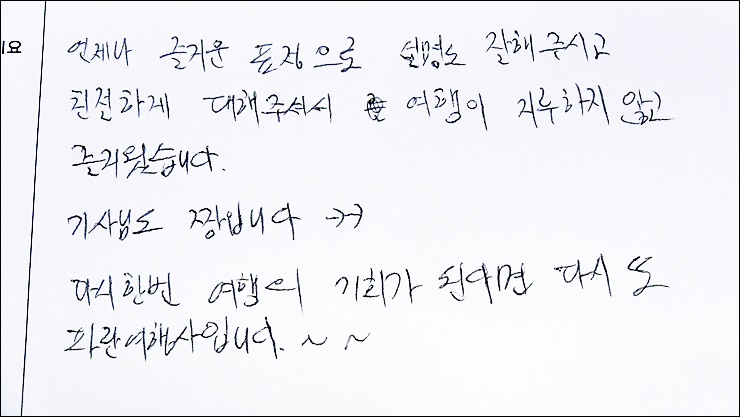 요
언제나 즐거운 표정으로 설명도 잘해주시고
친절하게 대해주셔서 여행이 지루하지 않고
즐거웠습니다.
기사님도 짱입니다 ㅋㅋ
다시한번 여행의 기회가 된다면 다시 또
파란여행사입니다. ~ ~